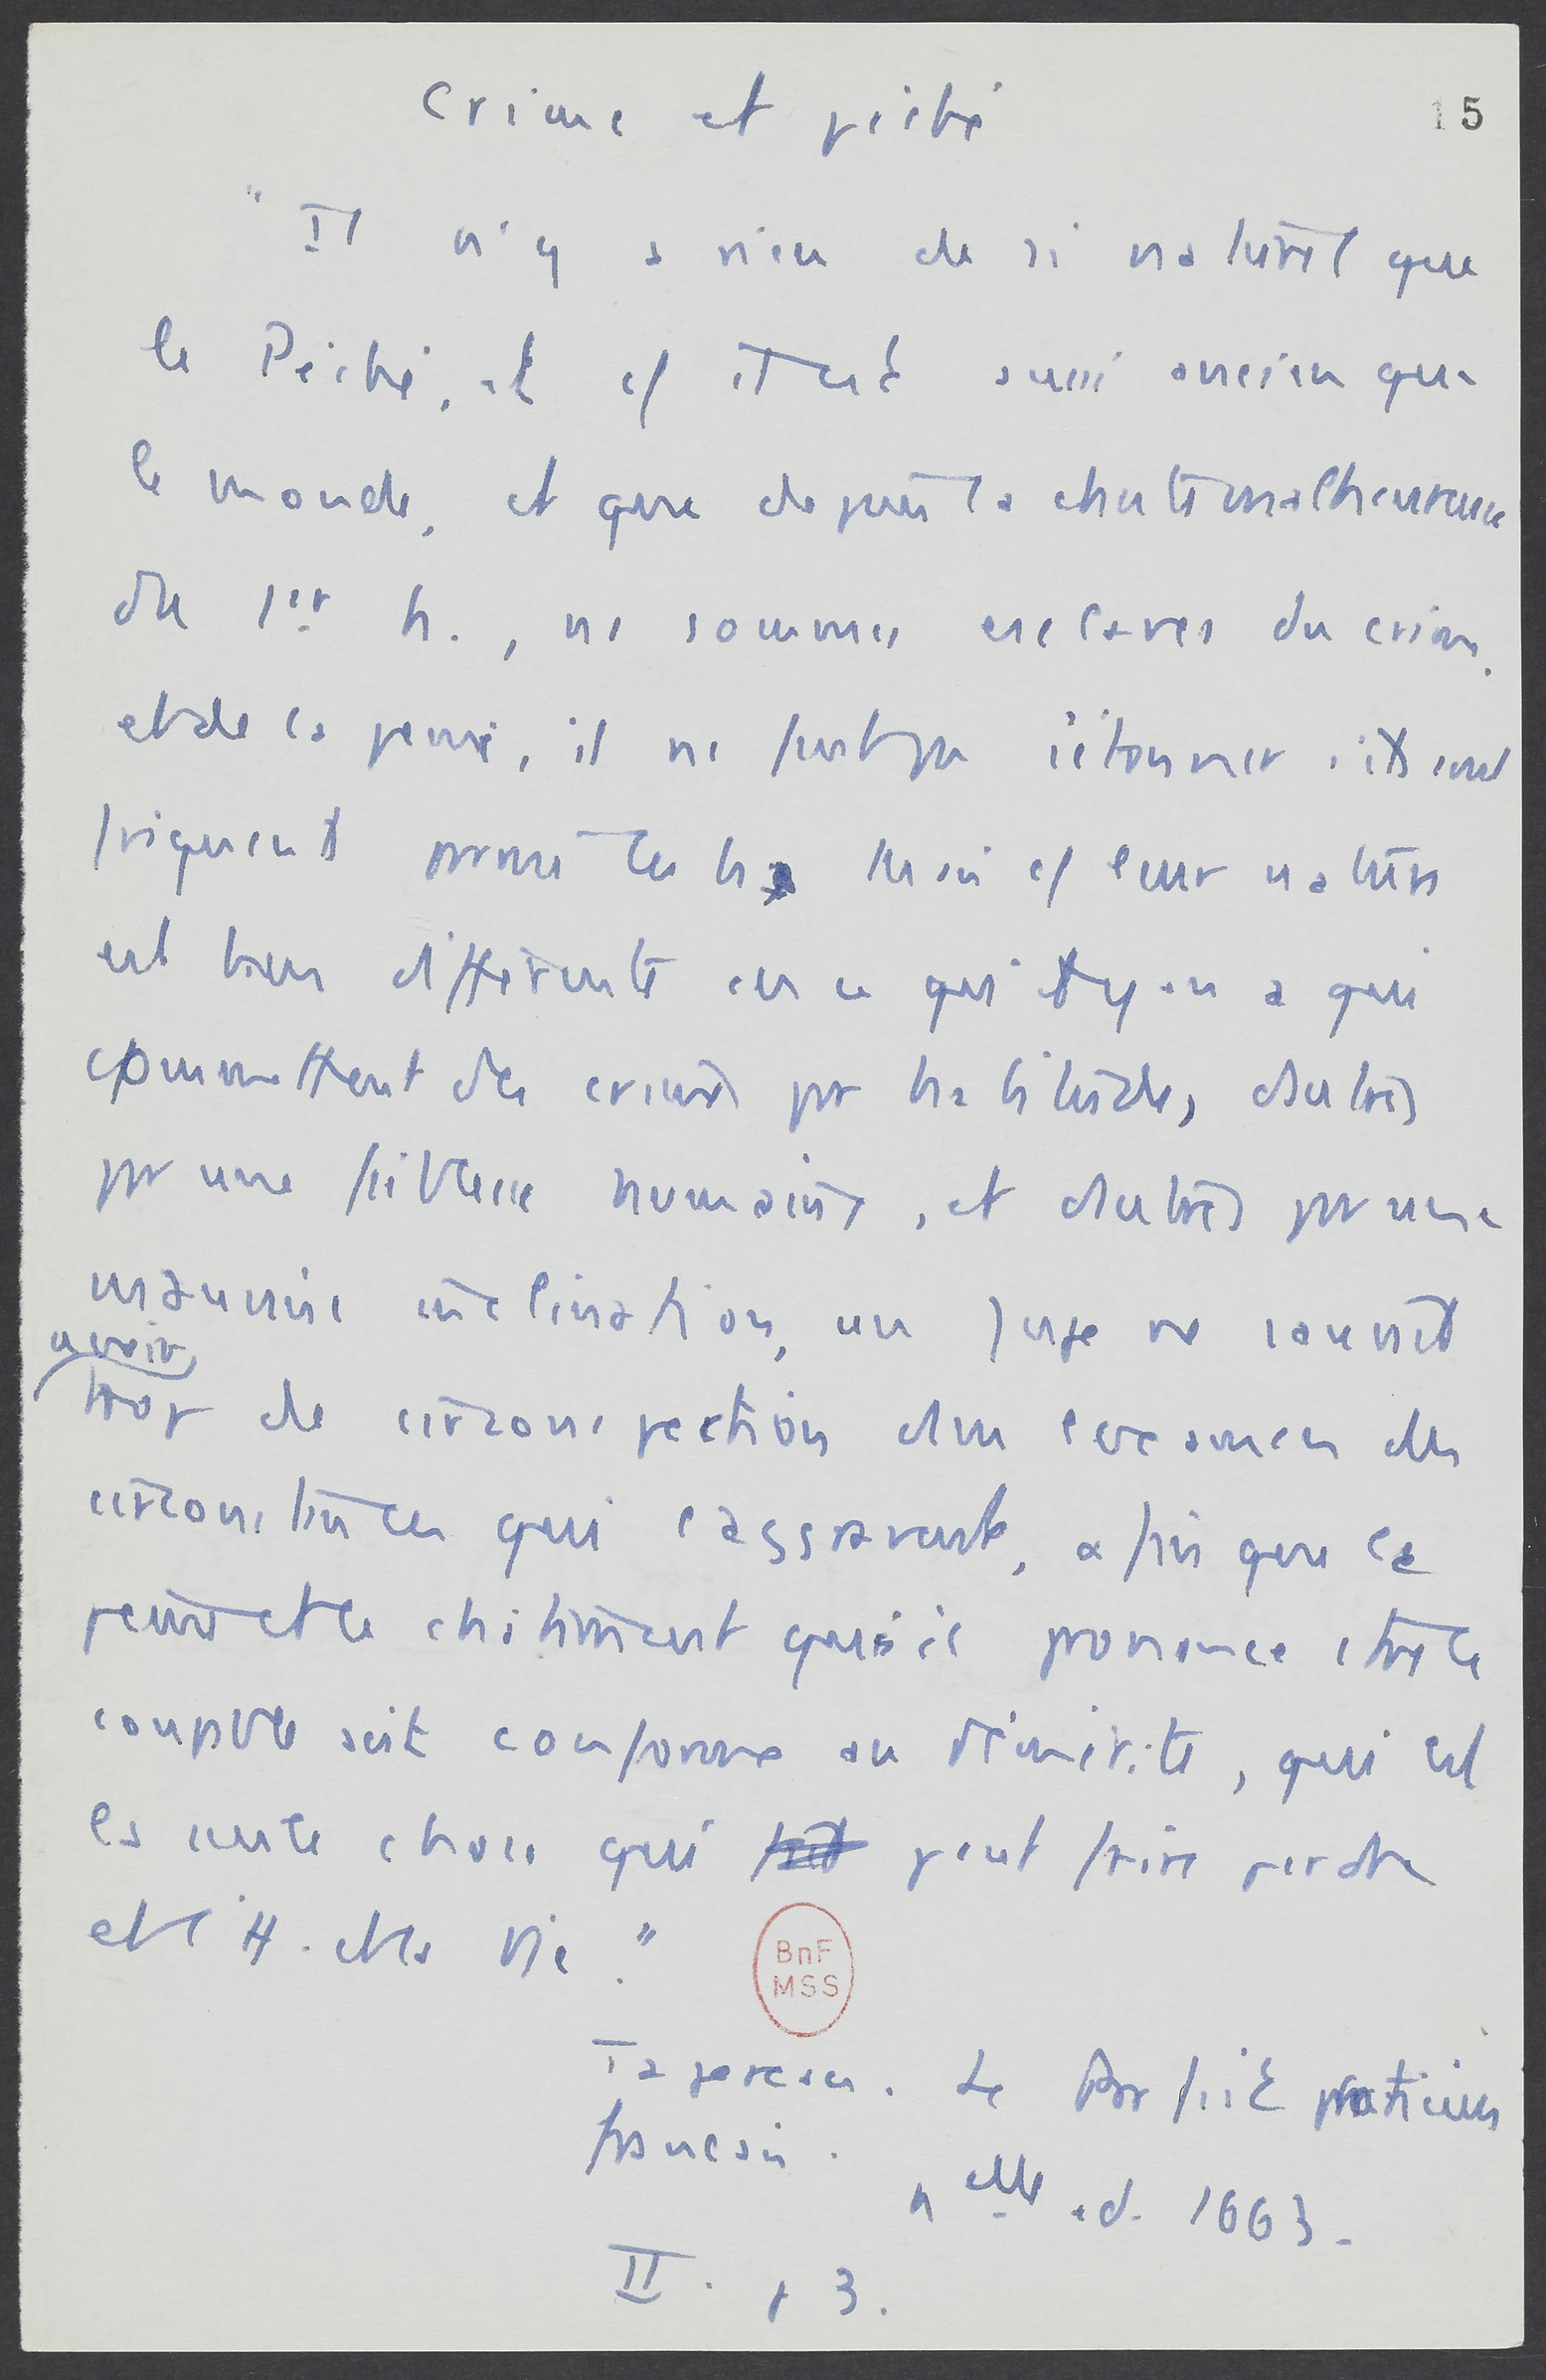 Crime et péché
15
"Il n'y a rien de si naturel que
le Péché, et cf étant aussi ancien que
le monde, et que depuis la chute malheureuse
du 1er h., ns sommes esclaves du crime
et de la peine, il ne faut pas s'étonner s'ils sont
fréquents parmi les h. Mais cf leur nature
est bien différente en ce qu'il y en a qui
commettent des crimes par habitude, d'autres
par une faiblesse humaine, et d'autres par une
mauvaise inclination, un juge ne saurait
avoir
trop de circonspection dans l'examen des
circonstances qui l'aggravent, afin que la
peine et le châtiment qu'il prononce contre le
coupable soit conforme au démérite, qui est
la seule chose qui peut faire perdre
et l'H. et la Vie."
BnF
MSS
Tagereau. Le Parfait praticien
français.
nelle ed. 1663.
II. p 3.